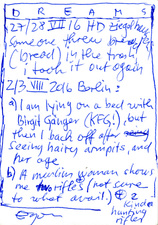 DREAMS
27/28 VII 16 HD Ziegelhausen
someone threw
(bread) in the trash,
i took it out again
2/3 VIII 2016 Berlin:
a) I am lying on a bed with
Birgit Gänger (KFG!), but
then I back off after
seeing hairy armpits, and
her age.
b) A muslim woman shows
me two rifles (not sure
to what avail.) 2
kinda
hunting
rifles